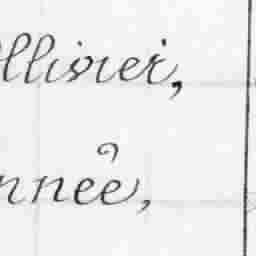 Ollivier,
nnée,